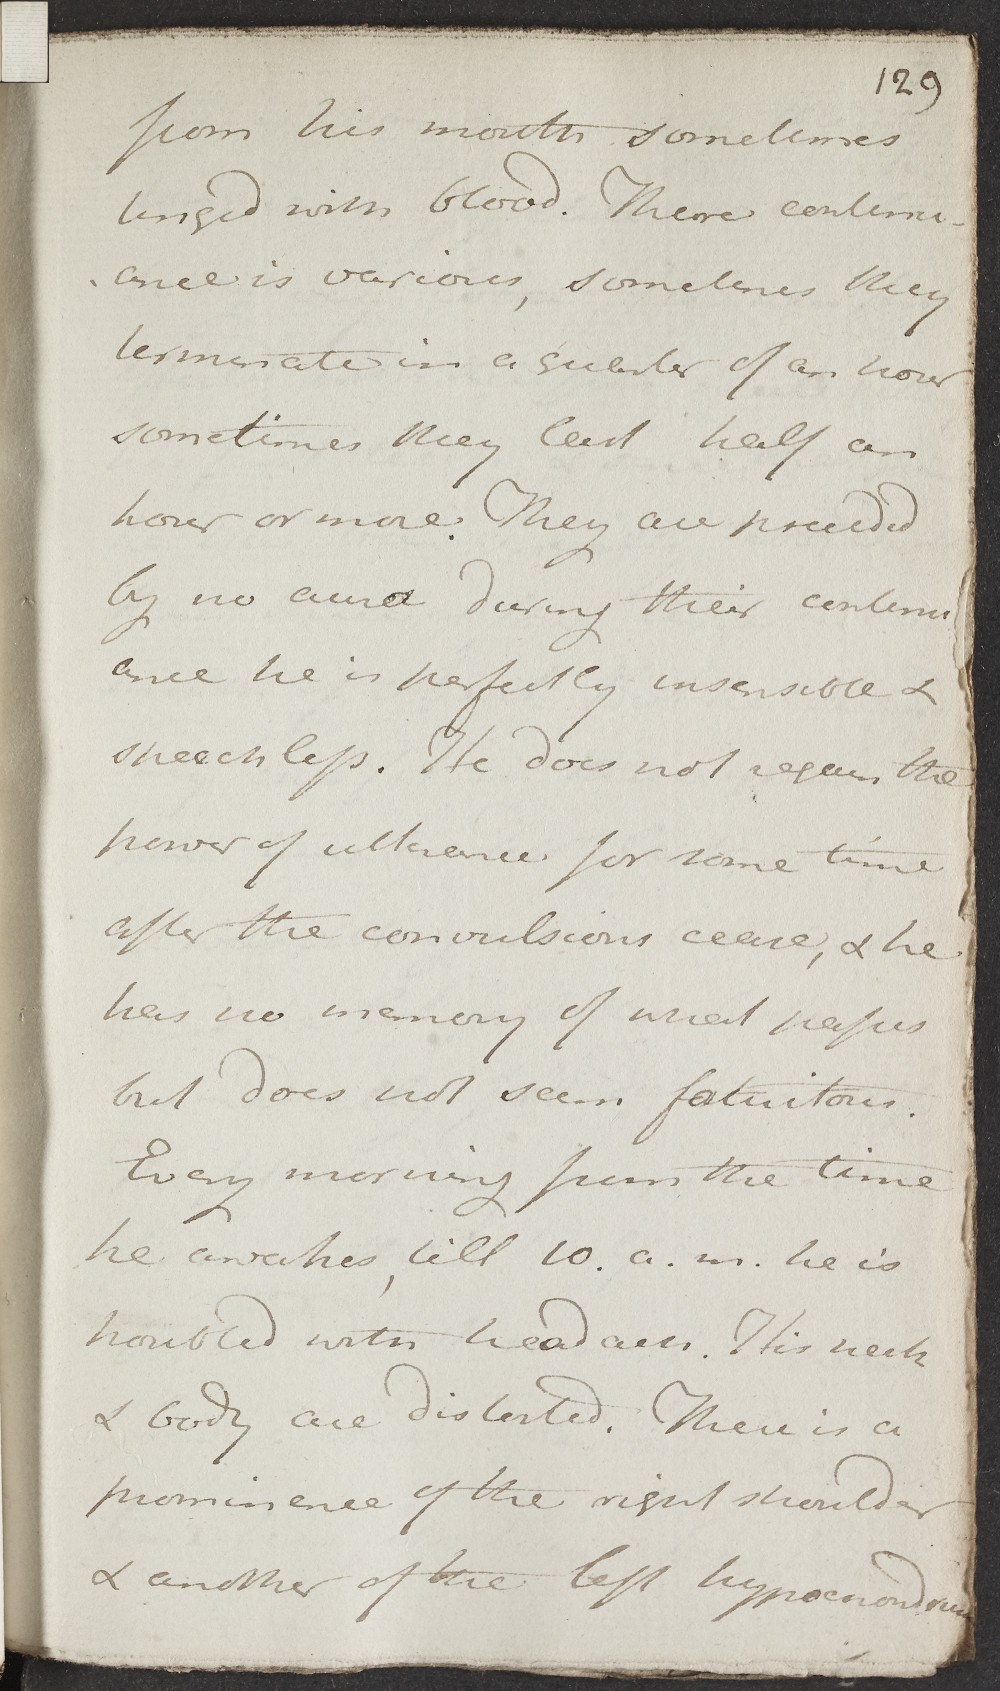 129
from his mouth sometimes
tinged with blood. There continu-
ance is various, sometimes they
terminate in a quarter of an hour
sometimes they last half an
hour or more. They are preceeded
by no aura during their continu
ance he is perfectly insensible &
speechless. He does not regain the
power of utterance for some time
after the convulsions cease, & he
has no memory of what passes
but does not seem fatuitous.
Every morning from the time
he awakes, till 10. a. m. he is
troubled with headach. His neck
& body are distorted. There is a
prominence of the right shoulder
& another of the left hypochondrium